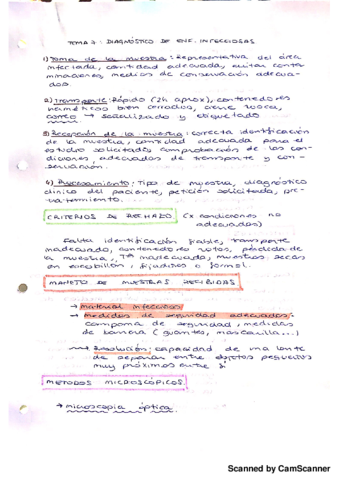 TEMA 7: DIAGNÓSTICO DE ENF. INFECCIOSAS
1) Toma de la muestra: Representativa del área
infectada, cantidad adecuada, evitar conta-
minaciones, medios de conservación adecua-
dos.
2) Transporte: Rápido (2h aprox), contenedores
herméticos bien cerrados,
correo → señalizado y etiquetado
3) Recepción de la muestra: correcta identificación
de la muestra, cantidad adecuada para el
estudio solicitado, comprobación de las con-
diciones adecuadas de transporte y con-
servación.
4) Procesamiento: Tipo de muestra, diagnóstico
clínico del paciente, petición solicitada, pre-
tratamiento.
CRITERIOS DE RECHAZO (x condiciones no
adecuadas)
Falta identificación, transporte
inadecuado, contenedores rotos, pérdida de
la muestra, Tª inadecuada, muestras secas
en escobillón, fijadores o formol.
MANEJO DE MUESTRAS RECIBIDAS
→ Material infeccioso
→ Medidas de seguridad adecuadas:
campana de seguridad, medidas
de barrera (guantes, mascarilla...)
Resolución: capacidad de una lente
de separar entre objetos pequeños
muy próximos entre sí
METODOS MICROSCÓPICOS
→ microscopía óptica.
Scanned by CamScanner